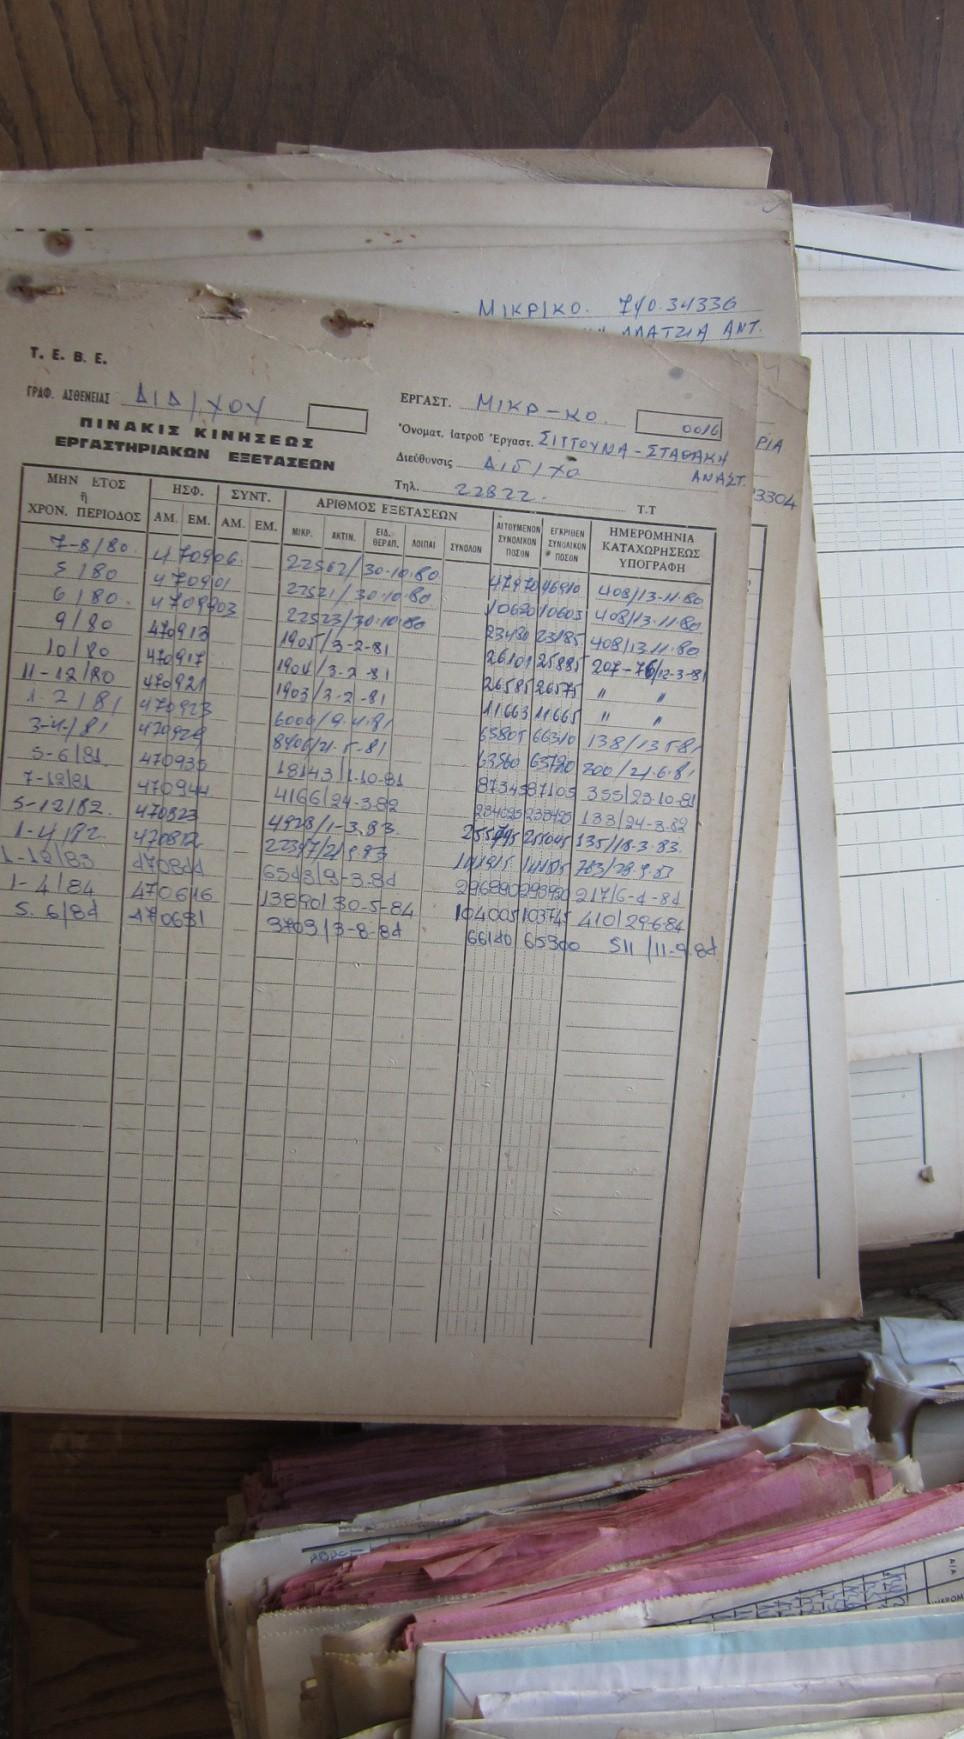 ΜΙΚΡΙΚΟ.
ΑΛΑΤΖΙΑ ΑΝΤ.
Τ. Ε. Β. Ε.
ΓΡΑΦ. ΑΣΘΕΝΕΙΑΣ ΔΙΔ/ΧΟΥ
ΠΙΝΑΚΙΣ ΚΙΝΗΣΕΩΣ
ΕΡΓΑΣΤΗΡΙΑΚΩΝ ΕΞΕΤΑΣΕΩΝ
ΕΡΓΑΣΤ. ΜΙΚΡ-ΚΟ. 0016
Ὀνοματ. Ιατροῦ Ἐργαστ. ΣΙΤΤΟΥΝΑ-ΣΤΑΘΑΚΗ
ΑΝΑΣΤ.
Διεύθυνσις ΔΙΔ/ΧΟ
Τηλ. 22822. Τ.Τ
ΡΙΑ
3304
ΜΗΝ ΕΤΟΣ ἤ ΧΡΟΝ. ΠΕΡΙΟΔΟΣ ΗΣΦ. ΣΥΝΤ. ΑΡΙΘΜΟΣ ΕΞΕΤΑΣΕΩΝ ΑΙΤΟΥΜΕΝΟΝ ΣΥΝΟΛΙΚΟΝ ΠΟΣΟΝ ΕΓΚΡΙΘΕΝ ΣΥΝΟΛΙΚΟΝ ΠΟΣΟΝ ΗΜΕΡΟΜΗΝΙΑ ΚΑΤΑΧΩΡΗΣΕΩΣ ΥΠΟΓΡΑΦΗ
ΑΜ. ΕΜ. ΑΜ. ΕΜ. ΜΙΚΡ. ΑΚΤΙΝ. ΕΙΔ. ΘΕΡΑΠ. ΛΟΙΠΑΙ ΣΥΝΟΛΟΝ
7-8/80 470906 22562/30.10.80 47970 46910 408/13-11-80
5/80 470901 22521/30.10.80 10620 10605 408/13.11.80
6/80 22523/30.10.80 23185 408/13.11.80
9/80 470913 1905/3-2-81 26101 25885 207-76/12-3-81
10/80 470917 1904/3-2-81 26585 26575 " "
11-12/80 470921 1903/3-2-81 11663 11665 " "
1-2/81 470923 6000/9.4.81 65805 66310 138/13.5.81
3-4/81 8406/21.5.81 63560 200/21.6.81
5-6/81 470935 18143/1-10-81 87345 87105 355/23.10.81
7-12/81 470944 4166/24-3.82 133/24-3.82
5-12/82. 470823 4928/1-3.83. 135/18.3.83.
1-4/82. 470812 283/28.9.83
1-12/83 470844 6543/9-3.84 296890 293920 217/6-4-84
1-4/84 470616 13890/30-5-84 104005 103745 410/29-6-84
5.6/84 470631 3703/3-8-84 66140 65300 511/11-9.84